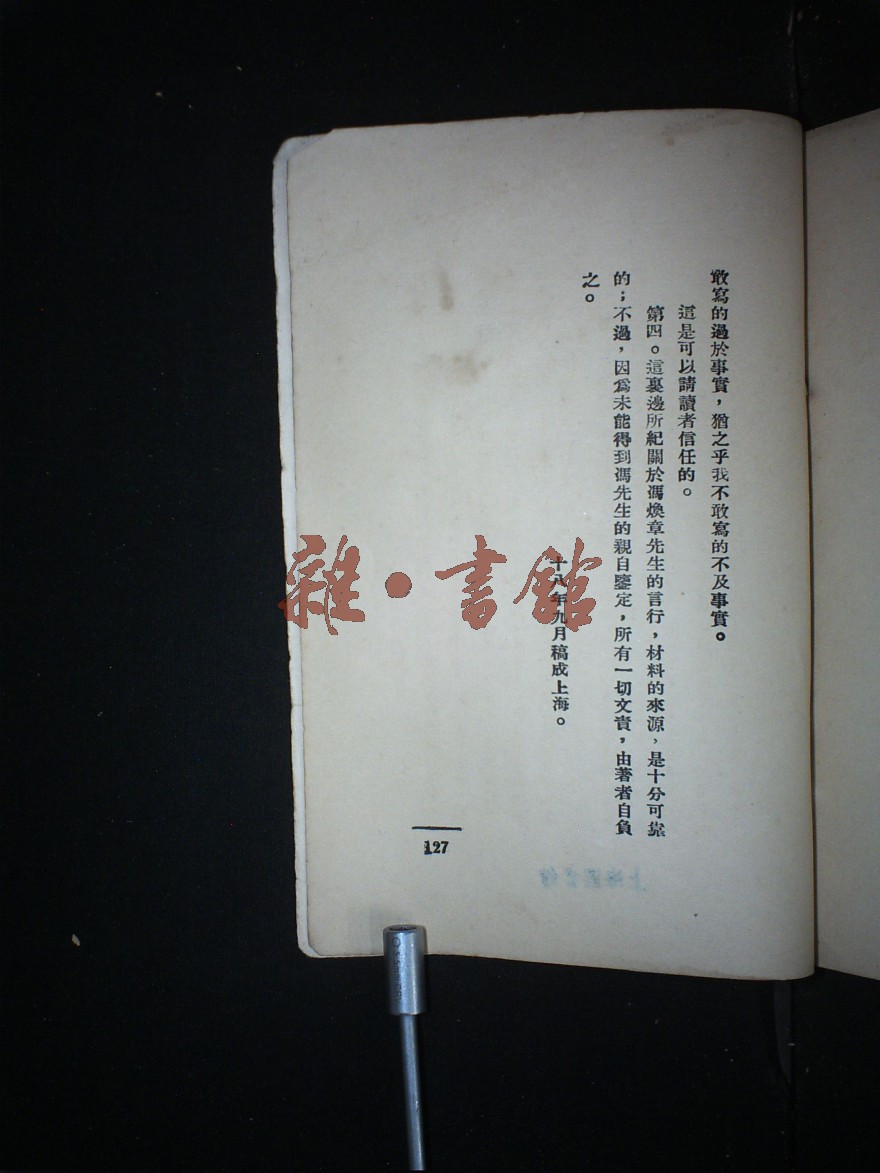 敢寫的過於事實，猶之乎我不敢寫的不及事實。
這是可以請讀者信任的。
第四。這裏邊所紀關於馮煥章先生的言行，材料的來源，是十分可靠
的；不過，因爲未能得到馮先生的親自鑒定，所有一切文責，由著者自負
之。
十八年九月稿成上海。
127
雜·書館